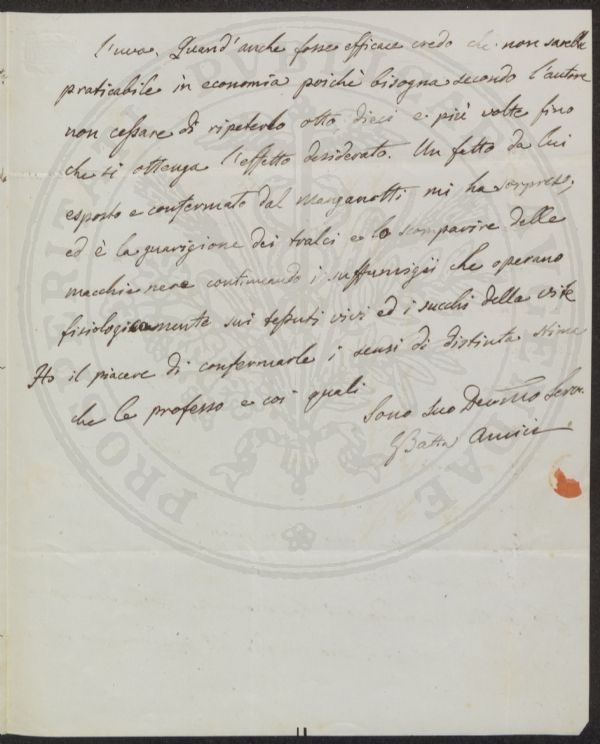 l'uva. Quand'anche fosse efficace credo che non sarebbe
praticabile in economia poichè bisogna secondo l'autore
non cessare di ripeterlo otto dieci e più volte fino
che si ottenga l'effetto desiderato. Un fatto da lui
esposto e confermato dal Marganotti mi ha sorpreso;
ed è la guarigione dei tralci e lo scomparire delle
macchie nere continuando i suffumigii che operano
fisiologicamente sui tessuti vivi ed i succhi della vite
Ho il piacere di confermarle i sensi di distinta stima
che le professo e coi quali
Sono Suo Devmo Serv.
GBatta Amici
PRO